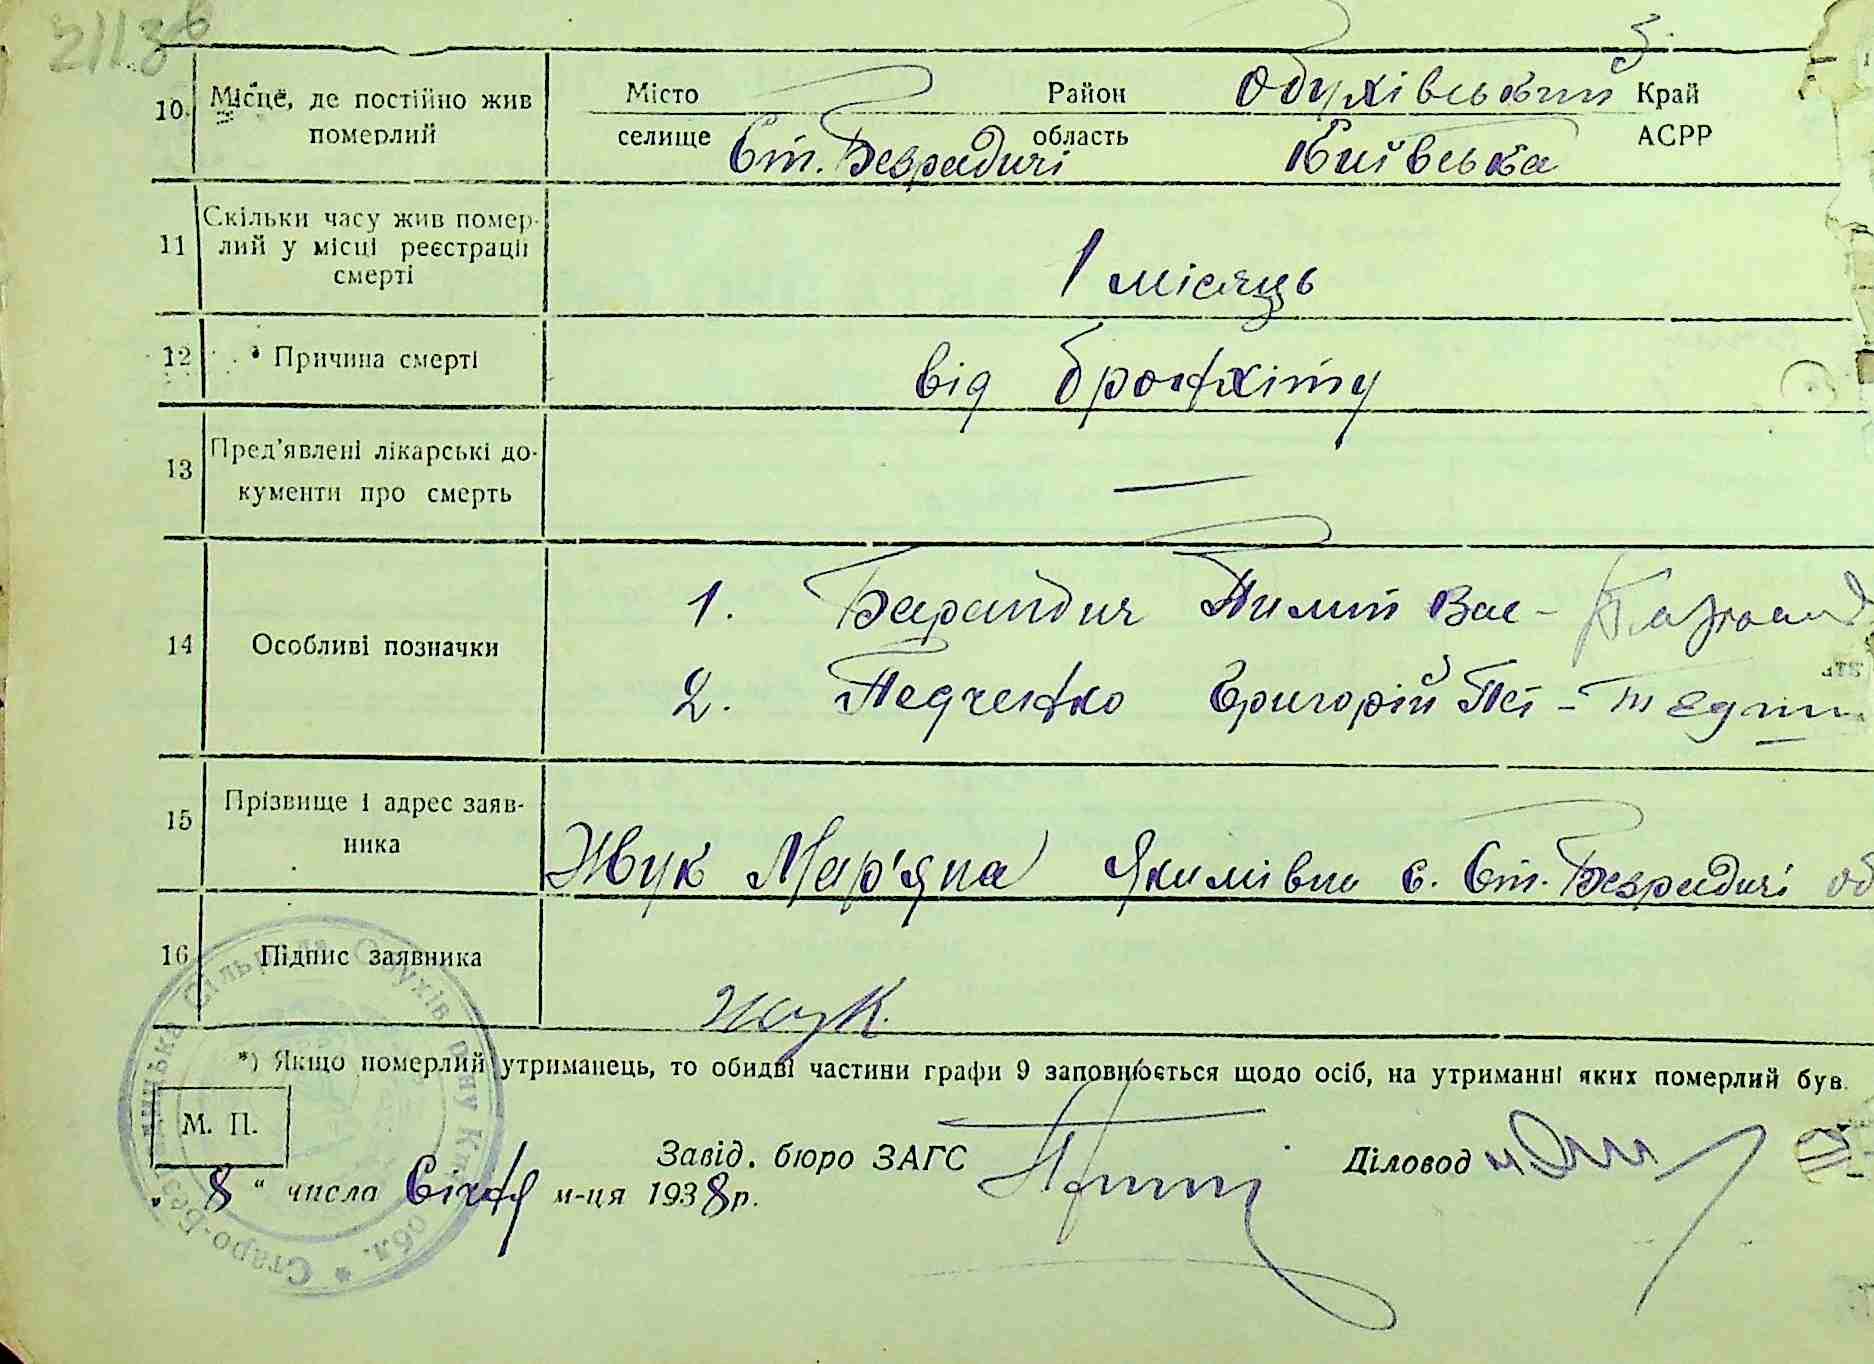 211 зв
10. Місце, де постійно жив померлий
Місто Район Обухівський Край
селище Ст. Безрадичі область Київська АСРР
11 Скільки часу жив помер-
лий у місці реєстрації
смерті
1 місяць
12 Причина смерті від бронхіту
13 Пред'явлені лікарські до-
кументи про смерть —
14 Особливі позначки
1. Барандич Пилип Вас -
2. Педченко Григорій Пет -
15 Прізвище і адрес заяв-
ника
Жук Мар'яна Якимівна с. Ст. Безрадичі об
16 Підпис заявника
Жук
*) Якщо померлий утриманець, то обидві частини графи 9 заповнюється щодо осіб, на утриманні яких померлий був.
М. П.
Завід. бюро ЗАГС Діловод
„ 8 “ числа Січня м-ця 1938 р.
Старо-Безрадицька Сільрада Обухів р-ну Київ обл.